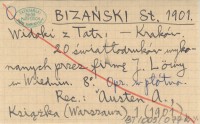 BIZAŃSKI St. 1901.
Widoki z Tatr. – Kraków
20 światłodruków wyko-
nanych przez firmę J. Löwy
w Wiedniu. 8°. Opr. w płótno.
Rec.: Austen A.,
Książka (Warszawa) 1 (1901)